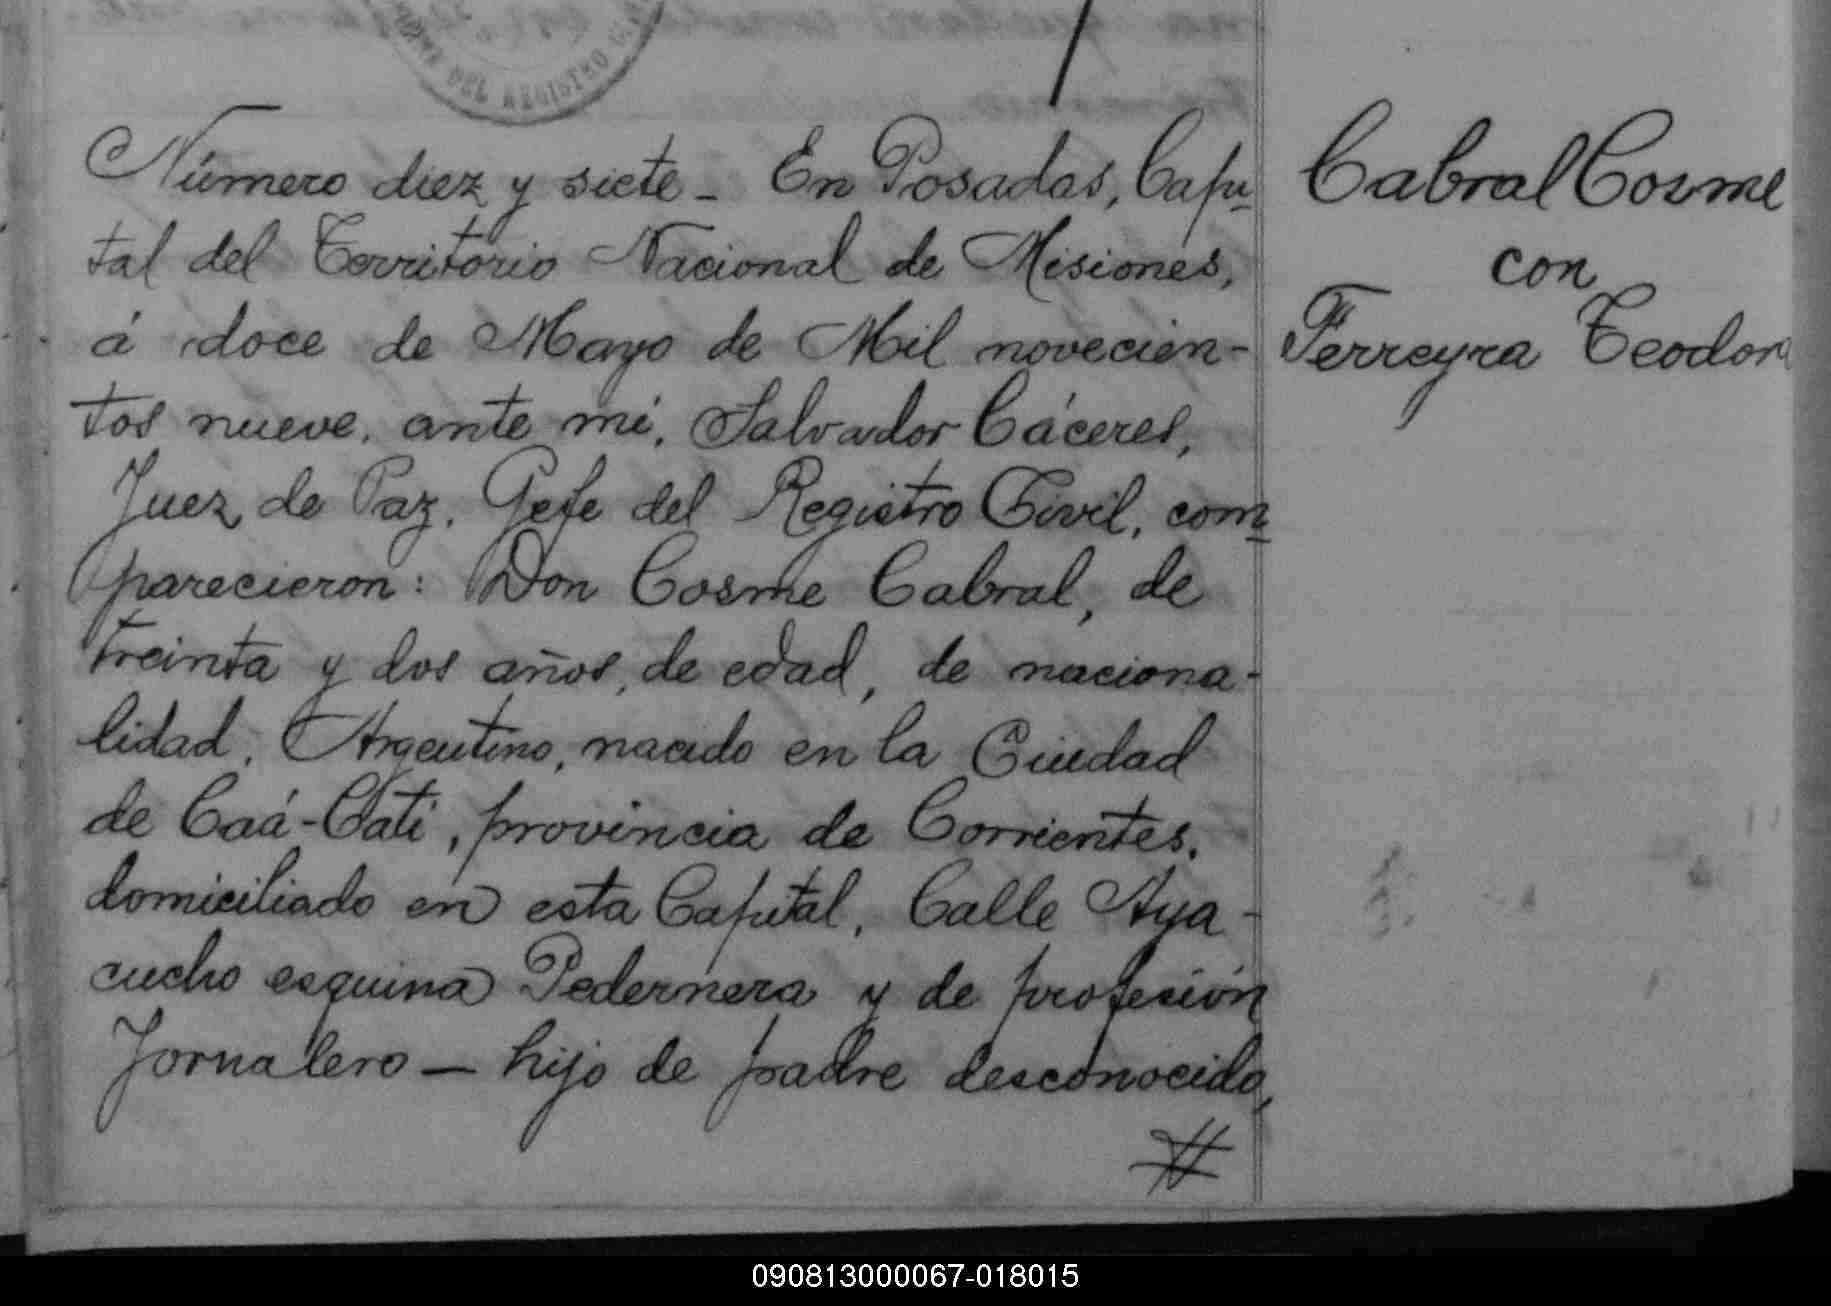 DEL REGISTRO
Número diez y siete - En Posadas, Capi-
tal del Territorio Nacional de Misiones,
á doce de Mayo de Mil novecien-
tos nueve, ante mí, Salvador Cáceres,
Juez de Paz, Gefe del Registro Civil, com-
parecieron: Don Cosme Cabral, de
treinta y dos años, de edad, de naciona-
lidad, Argentino, nacido en la Ciudad
de Caá-Catí, provincia de Corrientes,
domiciliado en esta Capital, Calle Aya-
cucho esquina Pedernera y de profesión
Jornalero — hijo de padre desconocido,
Cabral Cosme
con
Ferreyra Teodora
090813000067-018015